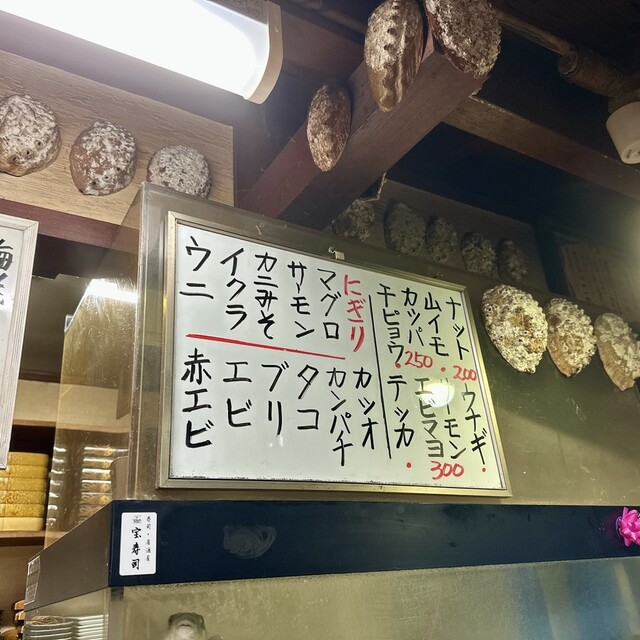 ナット
山イモ
カッパ
チピョウ
200
250
ウナギ
サーモン
エビマヨ
テッカ
300
にぎり
マグロ
サーモン
カニみそ
イクラ
ウニ
カツオ
カンパチ
タコ
ブリ
エビ
赤エビ
寿司・居酒屋
宝寿司